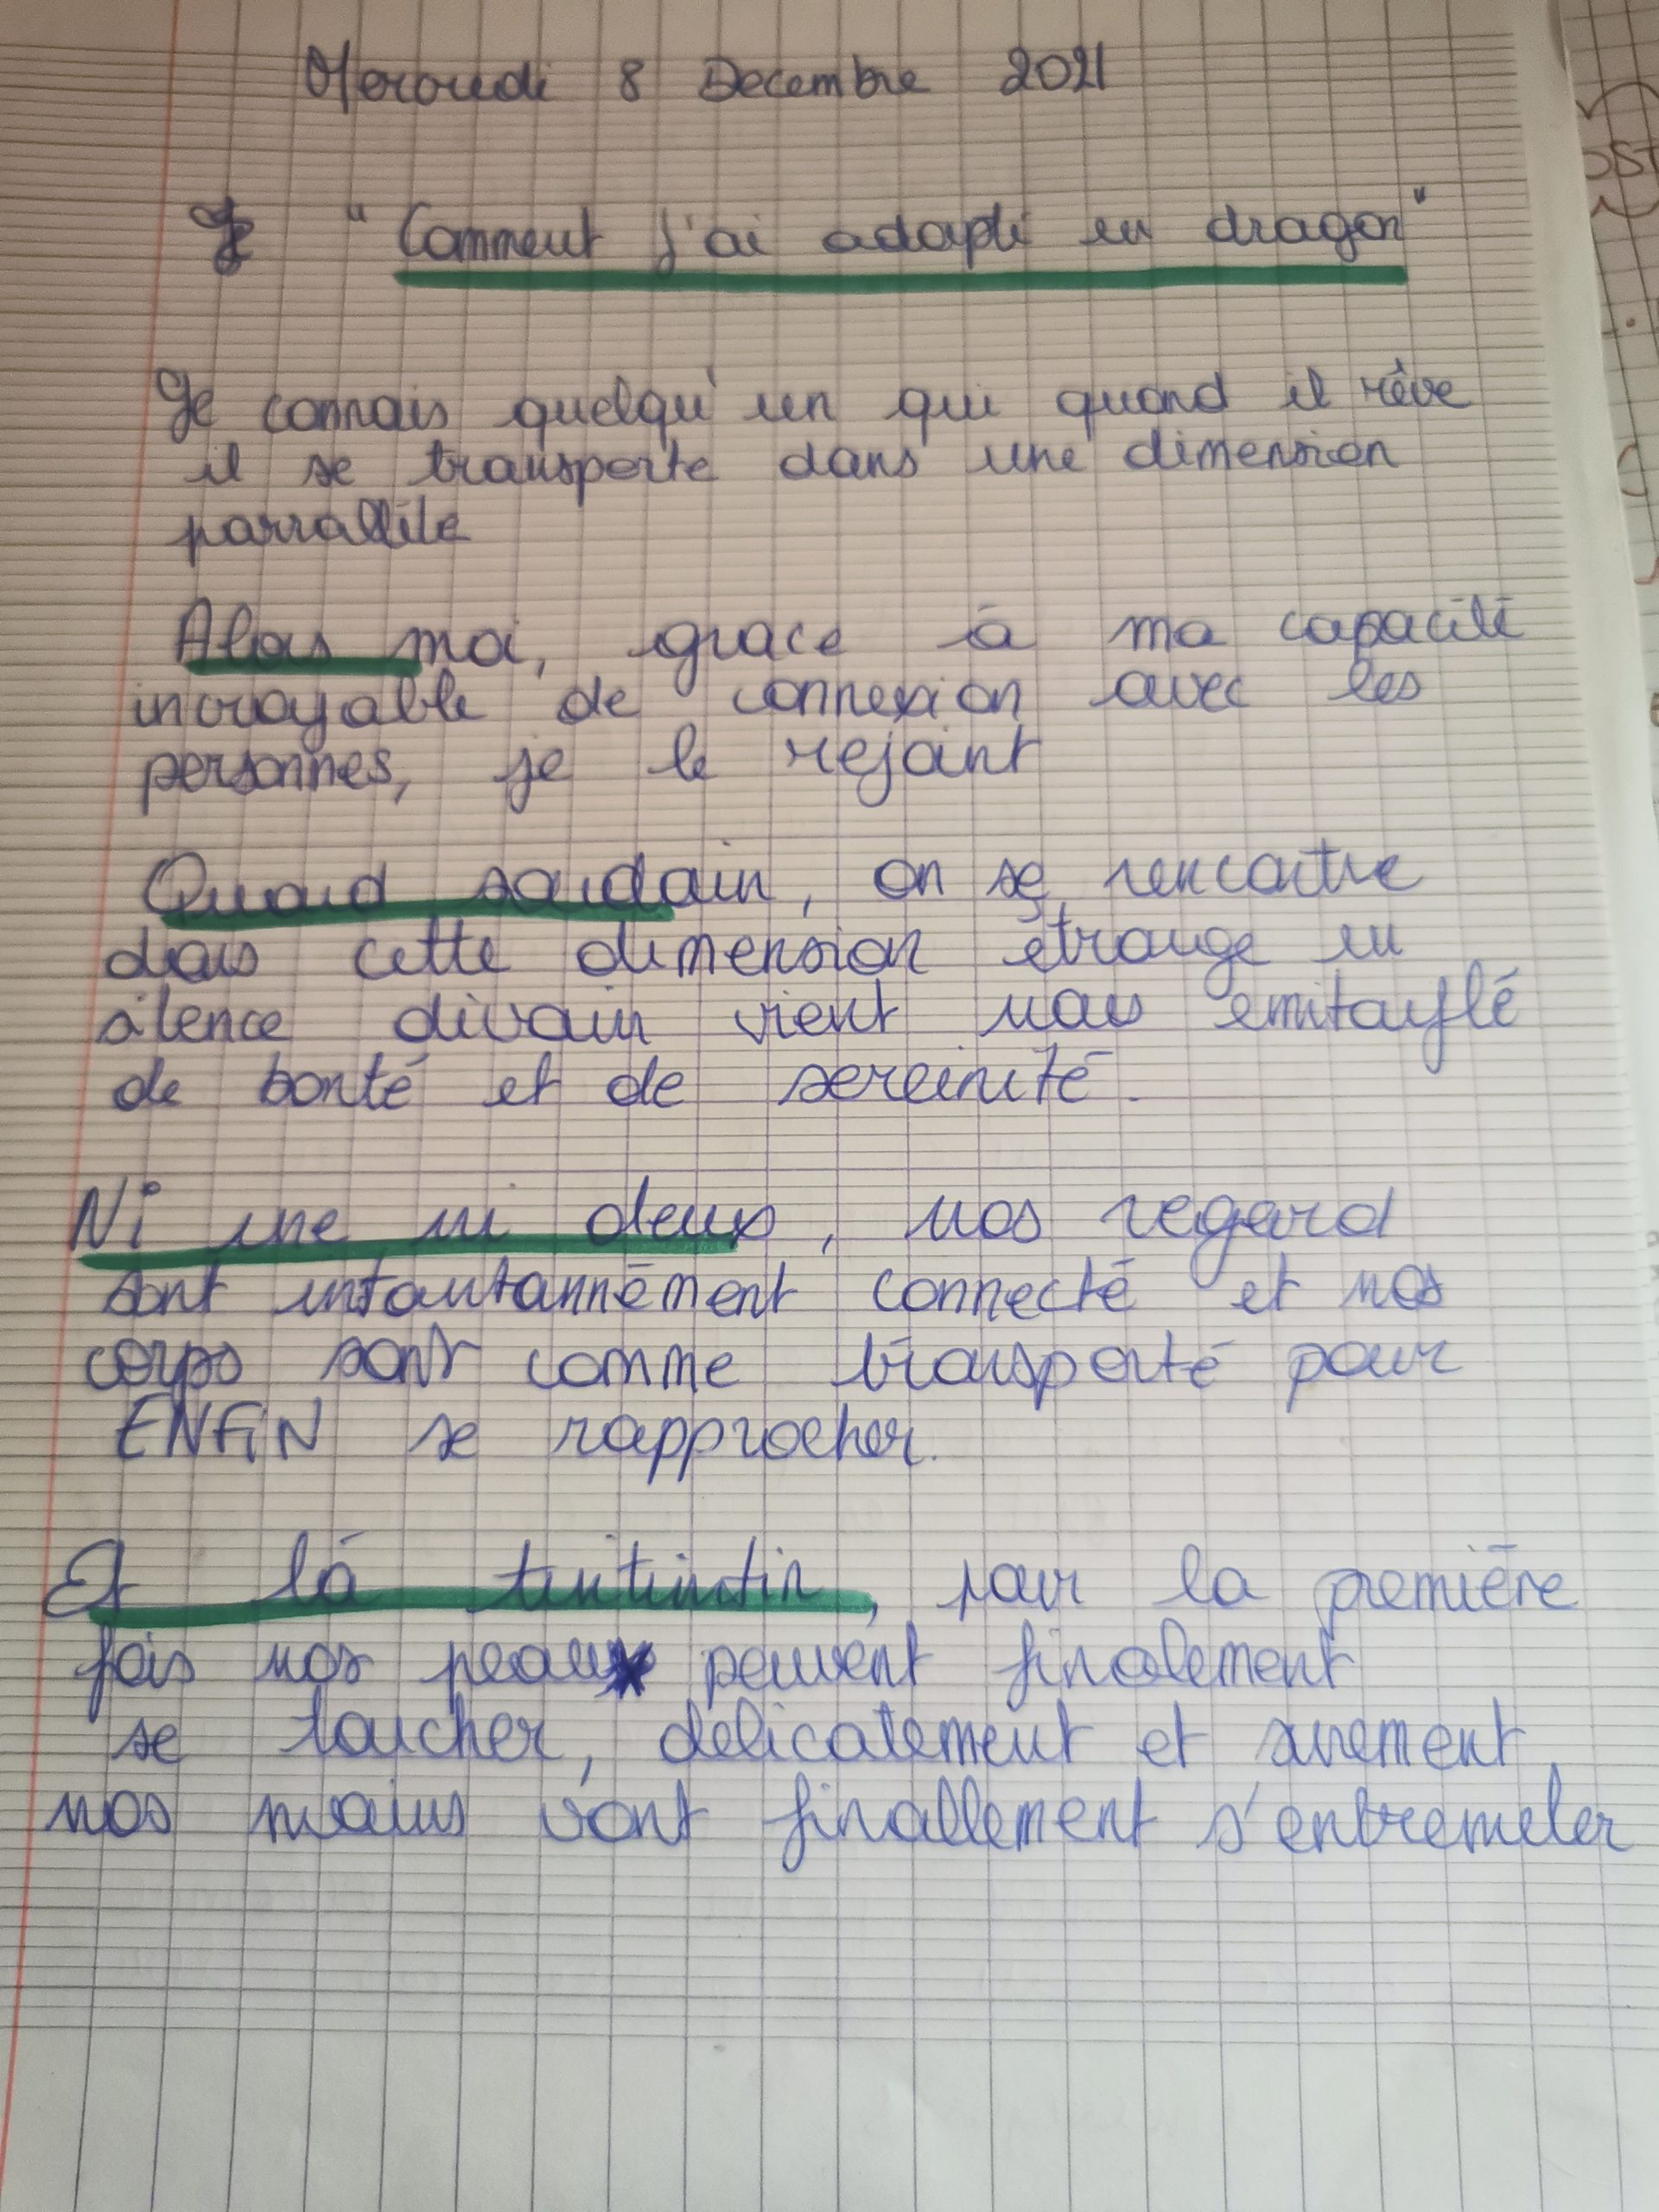 Mercredi 8 Decembre 2021
"Comment j'ai adopté un dragon"
Je connais quelqu'un qui quand il rêve
il se transporte dans une dimension
parrallèle
Alors moi, grace à ma capacité
incroyable de connexion avec les
personnes, je le rejoint
Quand soudain, on se rencontre
dans cette dimension étrange un
silence divain vient nous emitouflé
de bonté et de sereinité.
Ni une ni deux, nos regard
sont instantannément connecté et nos
corps sont comme transporté pour
ENFiN se rapprocher.
Et là tintintin, pour la première
fois nos peaux peuvent finalement
se toucher, delicatement et surement
nos mains vont finallement s'entremeler
OST